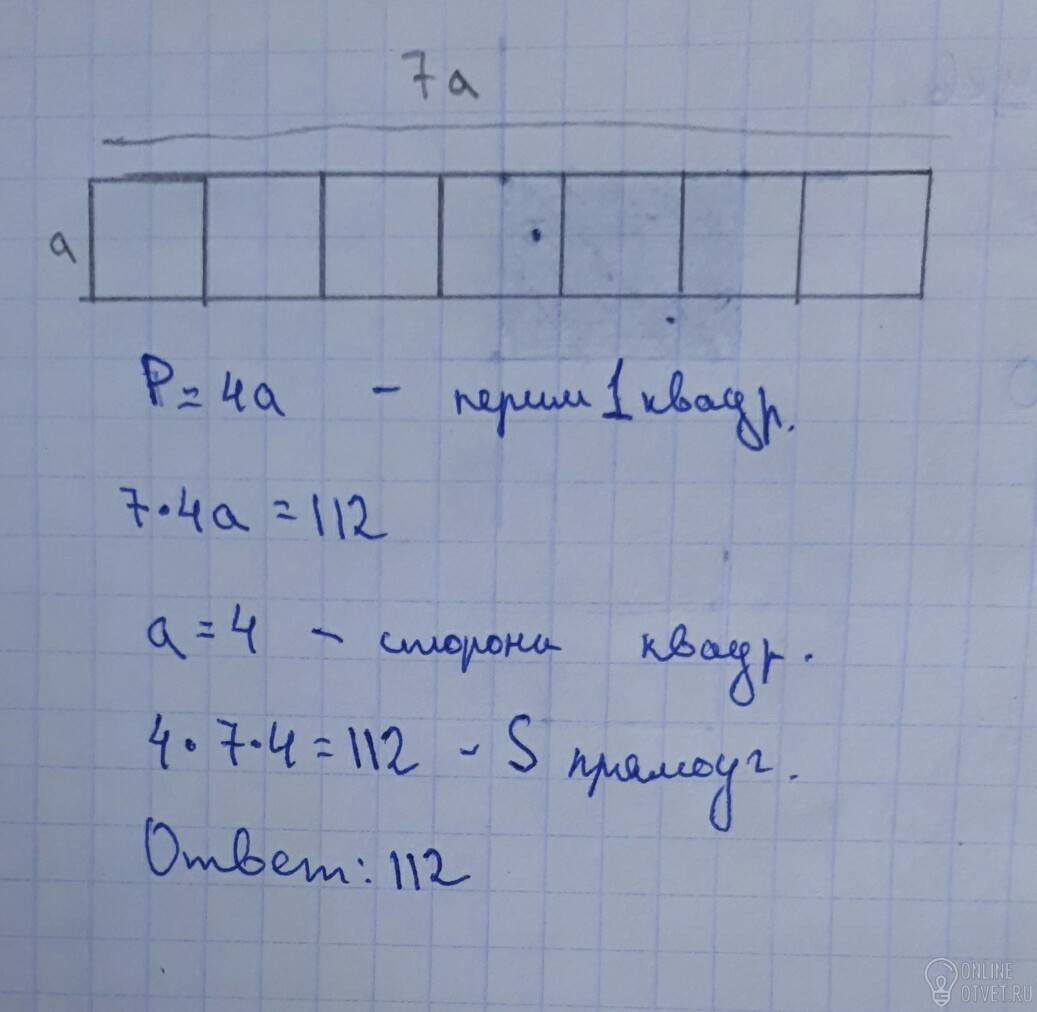 7a
a
P=4a - перим 1 квадр.
7·4a=112
a=4 - сторона квадр.
4·7·4=112 - S прямоуг.
Ответ: 112
ONLINE
OTVET.RU